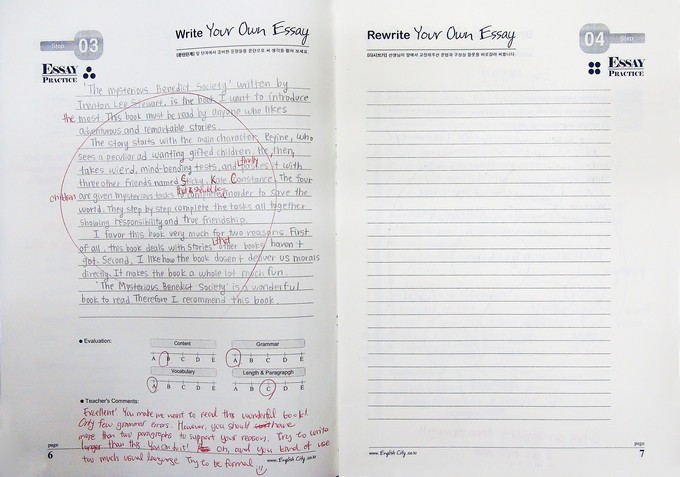 Step 03
Write Your Own Essay
ESSAY
PRACTICE
'The mysterious Benedict Society' written by
Trenton Lee Stewart, is the book I want to introduce
the most. This book must be read by anyone who likes
adventurous and remarkable stories.
The story starts with the main character, Reynie, who
sees a peculiar ad wanting gifted children. He, then,
takes wierd, mind-bending tests, and finally passes it with
three other friends named Sticky, Kate Constance. The four
children are given mysterious tasks to complete in order to save the
world. They step by step complete the tasks all together
showing responsibility and true friendship.
I favor this book very much for two reasons. First
of all, this book deals with stories that other books haven't
got. Second, I like how the book dosen't deliver us morals
directly. It makes the book a whole lot much fun.
'The Mysterious Benedict Society' is a wonderful
book to read. Therefore I recommend this book.
Evaluation:
Content
Grammar
A B C D E
A B C D E
Vocabulary
Length & Paragrapgh
A B C D E
A B C D E
Teacher's Comments:
Excellent! You make me want to read this wonderful book!
Only few grammar errors. However, you should have
more than two paragraphs to support your reasons. Try to write
longer than this. You can do it! Oh, and you kind of use
too much usual language. Try to be formal
page
6
www.English City.co.kr
Rewrite Your Own Essay
04 Step
ESSAY
PRACTICE
page
7
www.English City.co.kr